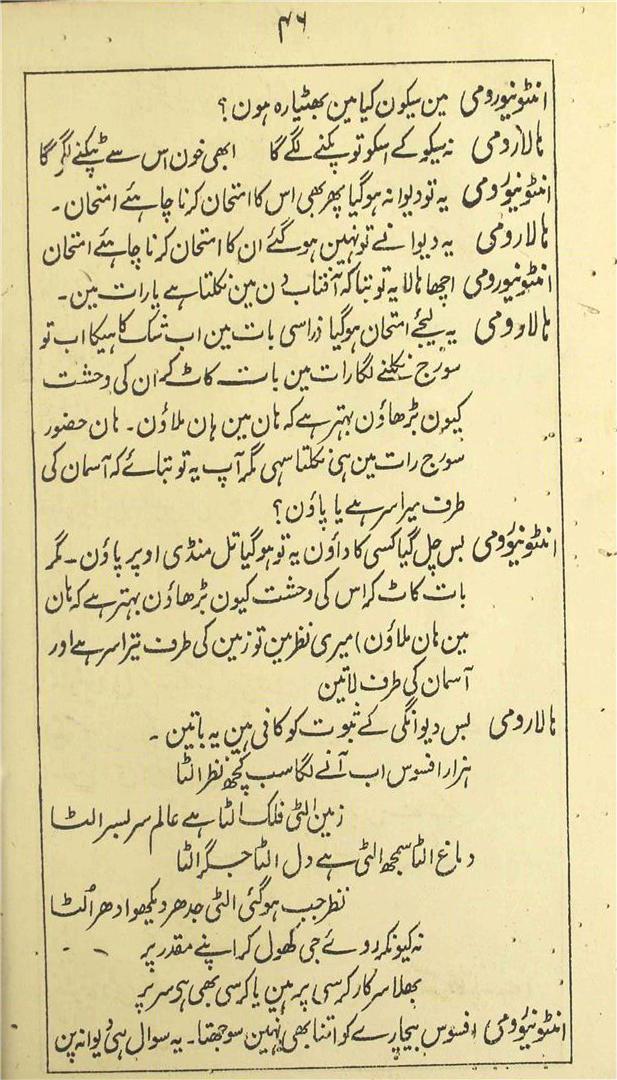 ۴۶
انٹونیورومی مین سیکون کیا مین بھٹیارہ ہون؟
ہالارومی نہ سیکو کے اسکو تو پکنے لگے گا ابھی خون اس سے ٹپکنے لگے گا
انٹونیورومی یہ تو دیوانہ ہوگیا پھر بھی اس کا امتحان کرنا چاہئے امتحان۔
ہالارومی یہ دیوانے تو نہین ہوگئے ان کا امتحان کرنا چاہئے امتحان
انٹونیورومی اچھا ہالا یہ تو بتا کہ آفتاب دن مین نکلتا ہے یا رات مین۔
ہالارومی یہ لیجئے امتحان ہوگیا ذرا سی بات مین اب شک کاہیکا اب تو
سورج نکلنے لگا رات مین بات کاٹ کر ان کی وحشت
کیون بڑھاؤن بہتر ہے کہ ہان مین ہان ملاؤن۔ ہان حضور
سورج رات مین ہی نکلتا سہی مگر آپ یہ تو بتائے کہ آسمان کی
طرف میرا سر ہے یا پاؤن؟
انٹونیورومی بس چل گیا کسی کا داؤن یہ تو ہوگیا تل منڈی اوپر پاؤن۔ مگر
بات کاٹ کر اس کی وحشت کیون بڑھاؤن بہتر ہے کہ ہان
مین ہان ملاؤن) میری نظر مین تو زمین کی طرف تیرا سر ہے اور
آسمان کی طرف لاتین
ہالارومی بس دیوانگی کے ثبوت کو کافی ہین یہ باتین۔
ہزار افسوس اب آنے لگا سب کچھ نظر الٹا
زمین الٹی فلک الٹا ہے عالم سر بسر الٹا
دماغ الٹا سمجھ الٹی ہے دل الٹا جگر الٹا
نظر جب ہوگئی الٹی جدھر دیکھو ادھر اُلٹا
نہ کیونکر روئے جی کھول کر اپنے مقدر پر
بھلا سرکار کرسی پر ہین یا کرسی بھی ہی سر پر
انٹونیورومی افسوس بیچارے کو اتنا بھی نہین سوجھتا۔ یہ سوال ہی دیوانہ پن